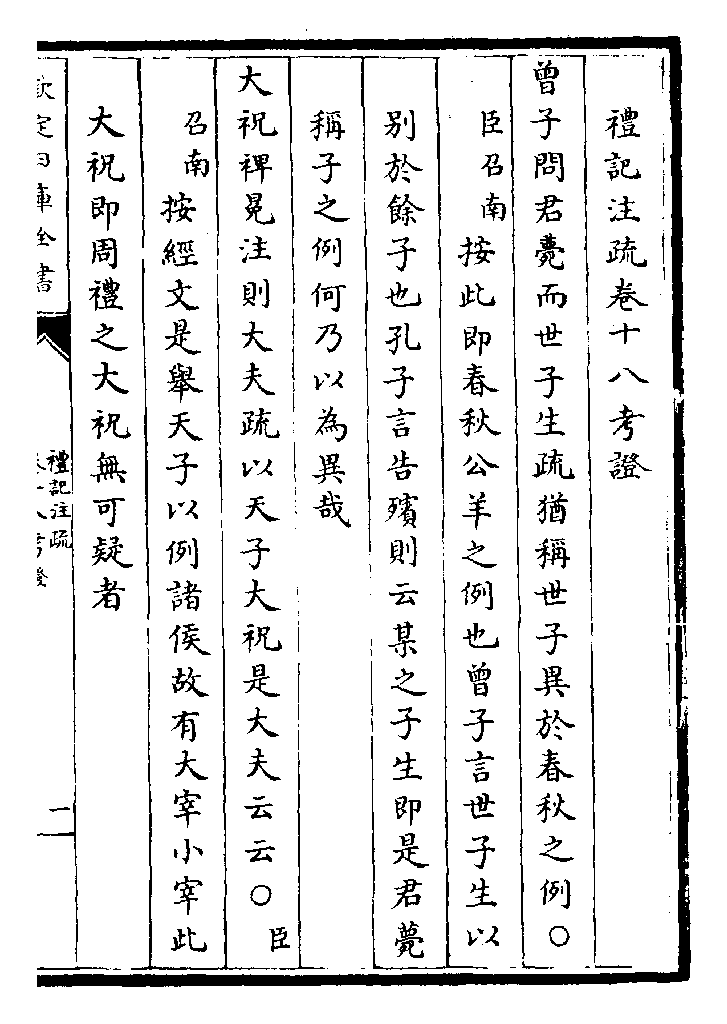 禮記注疏卷十八考證
曾子問君薨而世子生疏猶稱世子異於春秋之例○
臣召南按此即春秋公羊之例也曾子言世子生以
別於餘子也孔子言告殯則云某之子生即是君薨
稱子之例何乃以為異哉
大祝裨冕注則大夫疏以天子大祝是大夫云云○臣
召南按經文是舉天子以例諸侯故有大宰小宰此
大祝即周禮之大祝無可疑者
欽定四庫全書
禮記注疏
卷十八考證
一